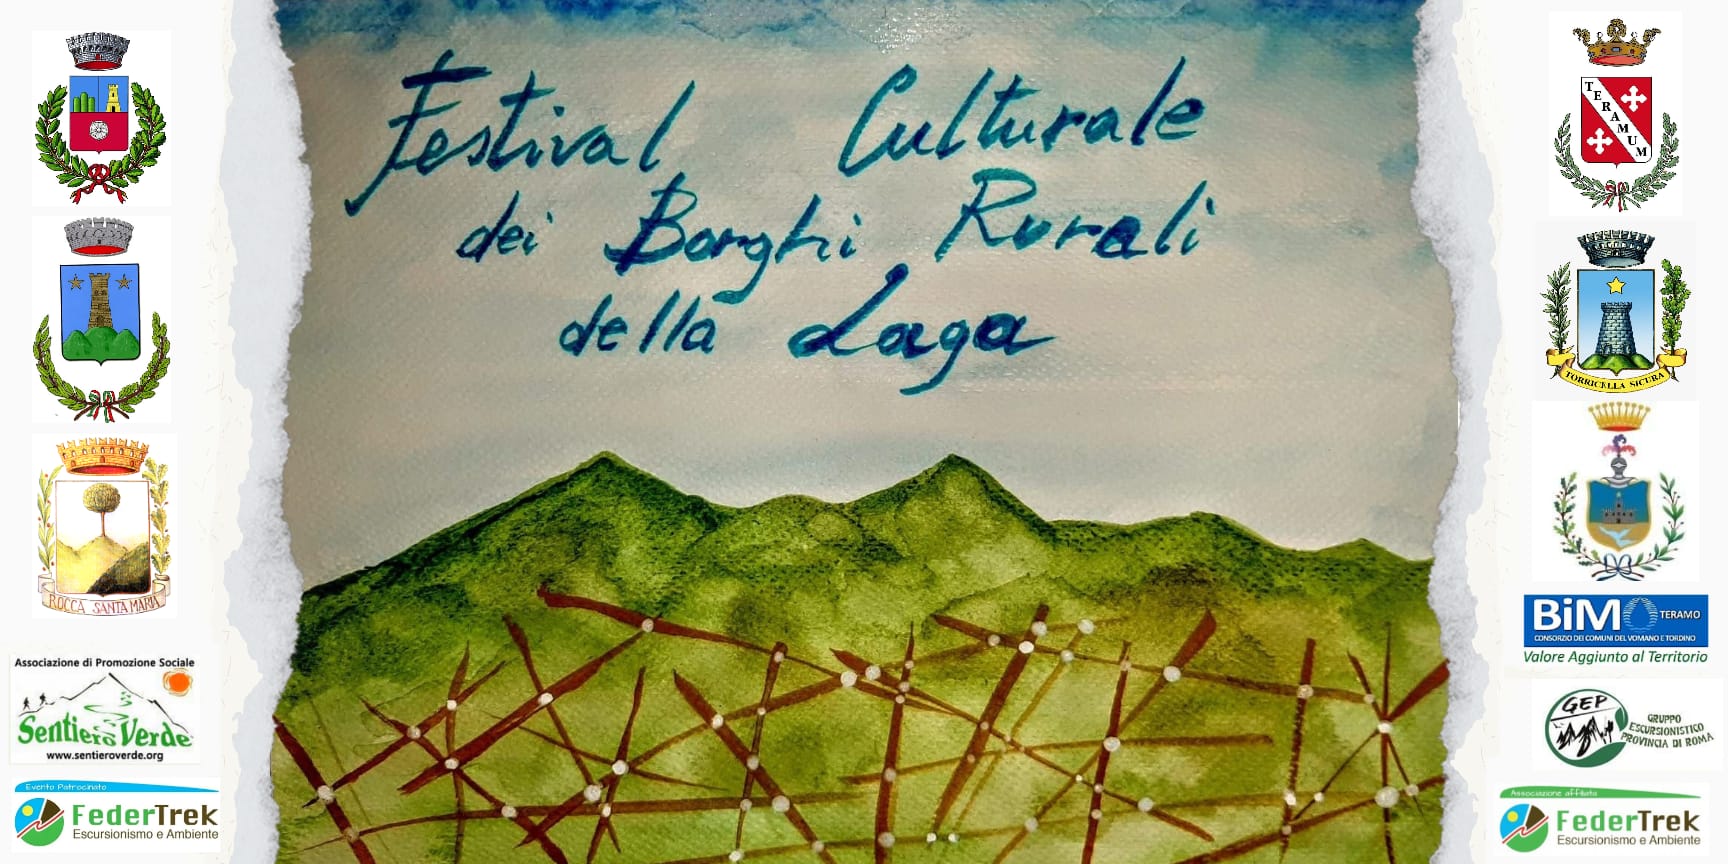 Festival Culturale
dei Borghi Rurali
della Laga
ROCCA SANTA MARIA
Associazione di Promozione Sociale
Sentiero Verde
www.sentieroverde.org
Evento Patrocinato
FederTrek
Escursionismo e Ambiente
TERAMUM
TORRICELLA SICURA
BiM TERAMO
CONSORZIO DEI COMUNI DEL VOMANO E TORDINO
Valore Aggiunto al Territorio
GEP
GRUPPO
ESCURSIONISTICO
PROVINCIA DI ROMA
Associazione affiliata
FederTrek
Escursionismo e Ambiente